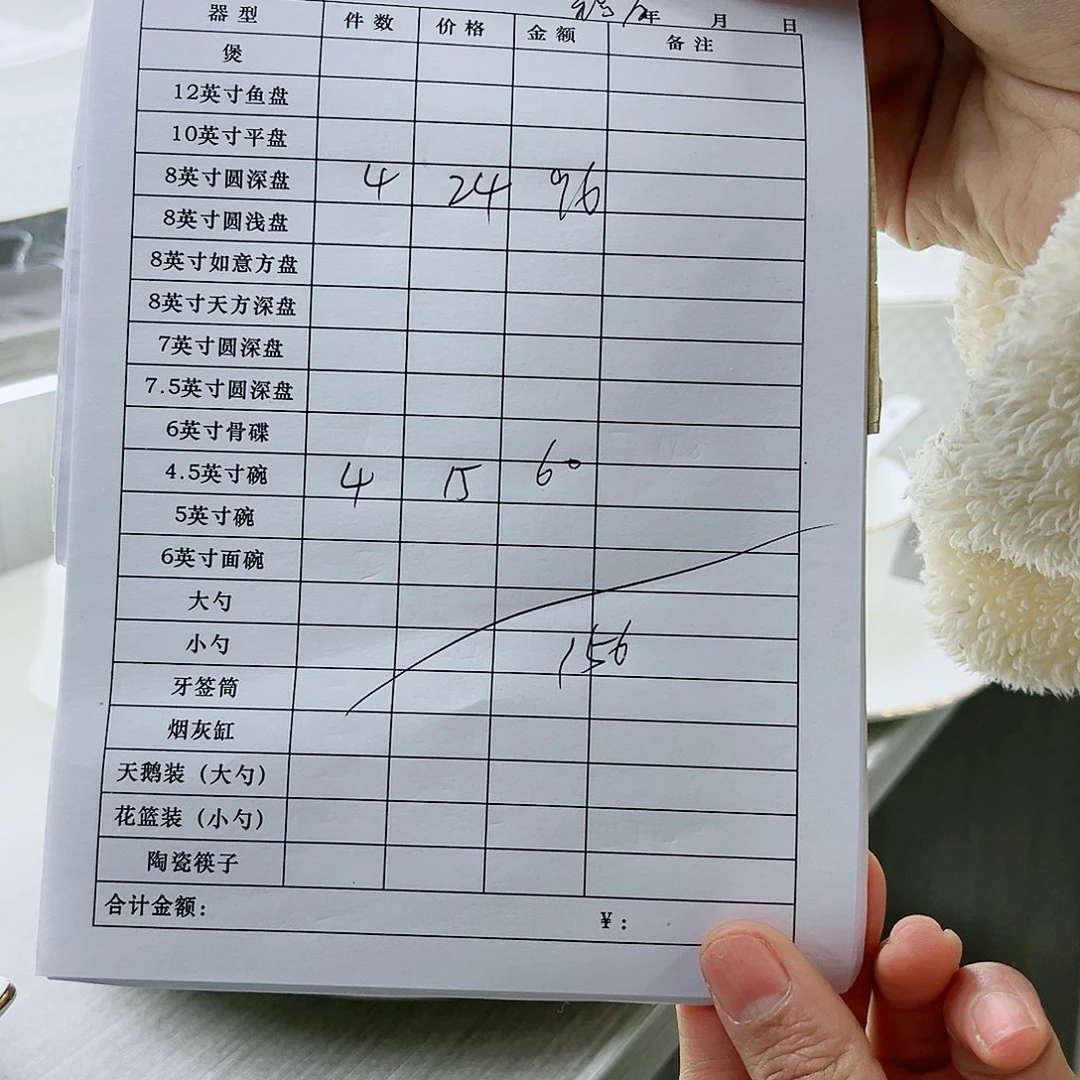 年 月 日
器型 件数 价格 金额 备注
煲
12英寸鱼盘
10英寸平盘
8英寸圆深盘 4 24 96
8英寸圆浅盘
8英寸如意方盘
8英寸天方深盘
7英寸圆深盘
7.5英寸圆深盘
6英寸骨碟
4.5英寸碗 4 15 60
5英寸碗
6英寸面碗
大勺
小勺 156
牙签筒
烟灰缸
天鹅装（大勺）
花篮装（小勺）
陶瓷筷子
合计金额： ¥：